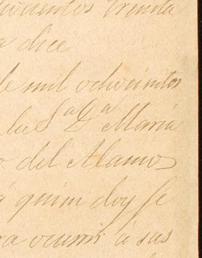 ochocientos treinta
a dice
de mil ochocientos
la Sa Da María
o del Alamo
á quien doy fé
ra ocurrir á sus